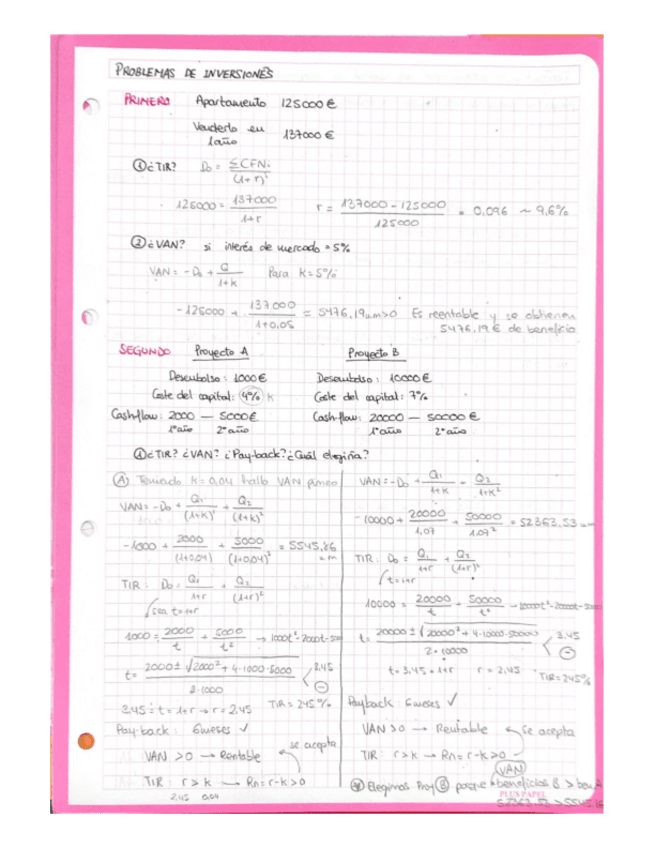 PROBLEMAS DE INVERSIONES
PRIMERO Apartamento 125000 €
Venderlo en 1 año 137000 €
① ¿TIR? D₀ = ΣCFNi / (1+r)^i
125000 = 137000 / 1+r r = 137000 - 125000 / 125000 = 0.096 ~ 9,6%
② ¿VAN? si interés de mercado = 5%
VAN = -D₀ + Q / 1+k Para k = 5%
-125000 + 137000 / 1+0,05 = 5476,19 um>0 Es reentable y se obtienen
5476,19 € de beneficio
SEGUNDO Proyecto A Proyecto B
Desembolso: 1000 € Desembolso: 10000 €
Coste del capital: 4% k Coste del capital: 7%
Cash-flow: 2000 — 5000 € Cash-flow: 20000 — 50000 €
1º año 2º año 1º año 2º año
① ¿TIR? ¿VAN? ¿Pay-back? ¿Cuál elegiría?
Ⓐ Teniendo k = 0,04 hallo VAN primero
VAN = -D₀ + Q₁ / (1+k)¹ + Q₂ / (1+k)²
-1000 + 2000 / (1+0,04) + 5000 / (1+0,04)² = 5545,86 um
TIR: D₀ = Q₁ / 1+r + Q₂ / (1+r)²
sea t = 1+r
1000 = 2000 / t + 5000 / t² → 1000t² - 2000t - 500
t = 2000 ± √2000² + 4·1000·5000 / 2·1000 < 3,45 ⊖
3.45 = t = 1+r → r = 2.45 TIR = 245%
Pay-back: 6 meses ✓
VAN > 0 → Rentable se acepta
TIR: r > k → Rn = r-k > 0
2.45 0.04
VAN = -D₀ + Q₁ / 1+k + Q₂ / 1+k²
-10000 + 20000 / 1,07 + 50000 / 1,07² = 52363,53 um
TIR: D₀ = Q₁ / 1+r + Q₂ / (1+r)²
t = 1+r
10000 = 20000 / t + 50000 / t² → 10000t² - 20000t - 500
t = 20000 ± √20000² + 4·10000·50000 / 2·10000 < 3.45 ⊖
t = 3.45 = 1+r r = 2,45 TIR = 245%
Payback: 6 meses ✓
VAN > 0 → Reutable se acepta
TIR: r > k → Rn = r-k > 0
VAN
Elegimos Proy Ⓑ porque beneficios B > ben A
PLUS PAPEL
52363,53 > 5545,86